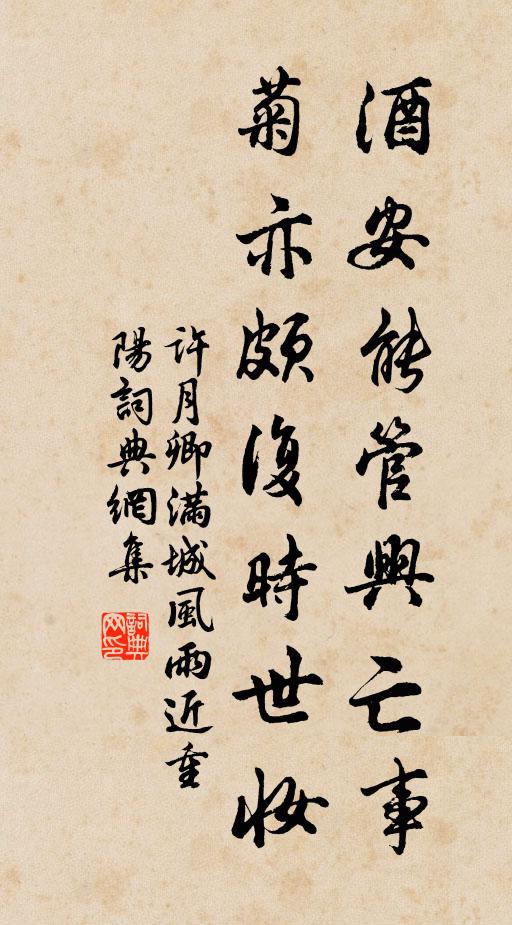 酒安能管興亡事
菊亦頗復時世妝
許月卿滿城風雨近重
陽詞典網集
詞典
网印